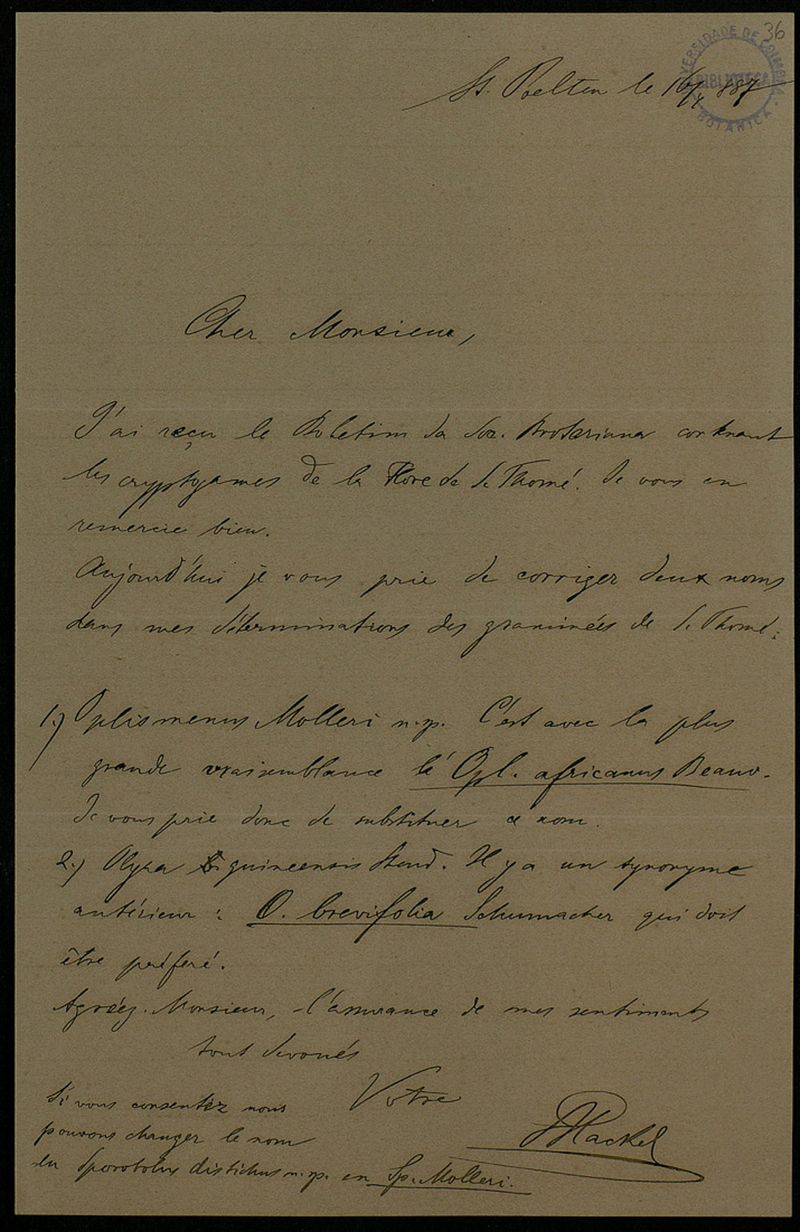 36
UNIVERSIDADE DE COIMBRA
BIBLIOTECA
BOTANICA
St. Poelten le 16/IX 887
Cher Monsieur,
J'ai reçu le Boletim da Soc. Broteriana contenant
les cryptogames de la Flore de S. Thomé. Je vous en
remercie bien.
Aujourd'hui je vous prie de corriger deux noms
dans mes déterminations des graminées de S. Thomé:
1.) Oplismenus Molleri n. sp. C'est avec la plus
grande vraisemblance le Opl. africanus Beauv.
Je vous prie donc de substituer ce nom.
2.) Olyra guineensis Steud. Il y a un synonyme
antérieur: O. brevifolia Schumacher qui doit
être préferé.
Agréez, Monsieur, l'assurance de mes sentiments
tout devoués
Votre
EHackel
Si vous consentez nous
pouvons changer le nom
du Sporobolus distichus n. sp. en Sp. Molleri.